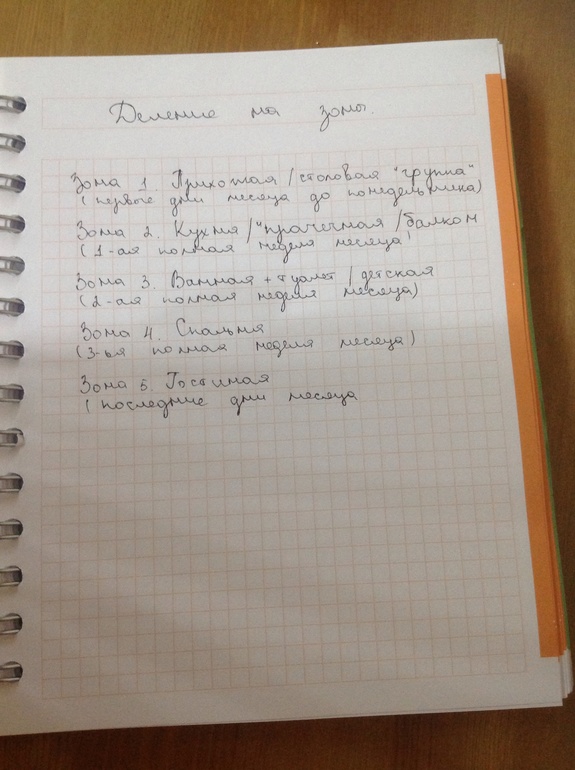 Деление на зоны.
Зона 1. Прихожая / столовая "группа"
(первые дни месяца до понедельника)
Зона 2. Кухня / "прачечная / балкон
(1-ая полная неделя месяца)
Зона 3. Ванная + туалет / детская
(2-ая полная неделя месяца)
Зона 4. Спальня
(3-ья полная неделя месяца)
Зона 5. Гостиная
(последние дни месяца